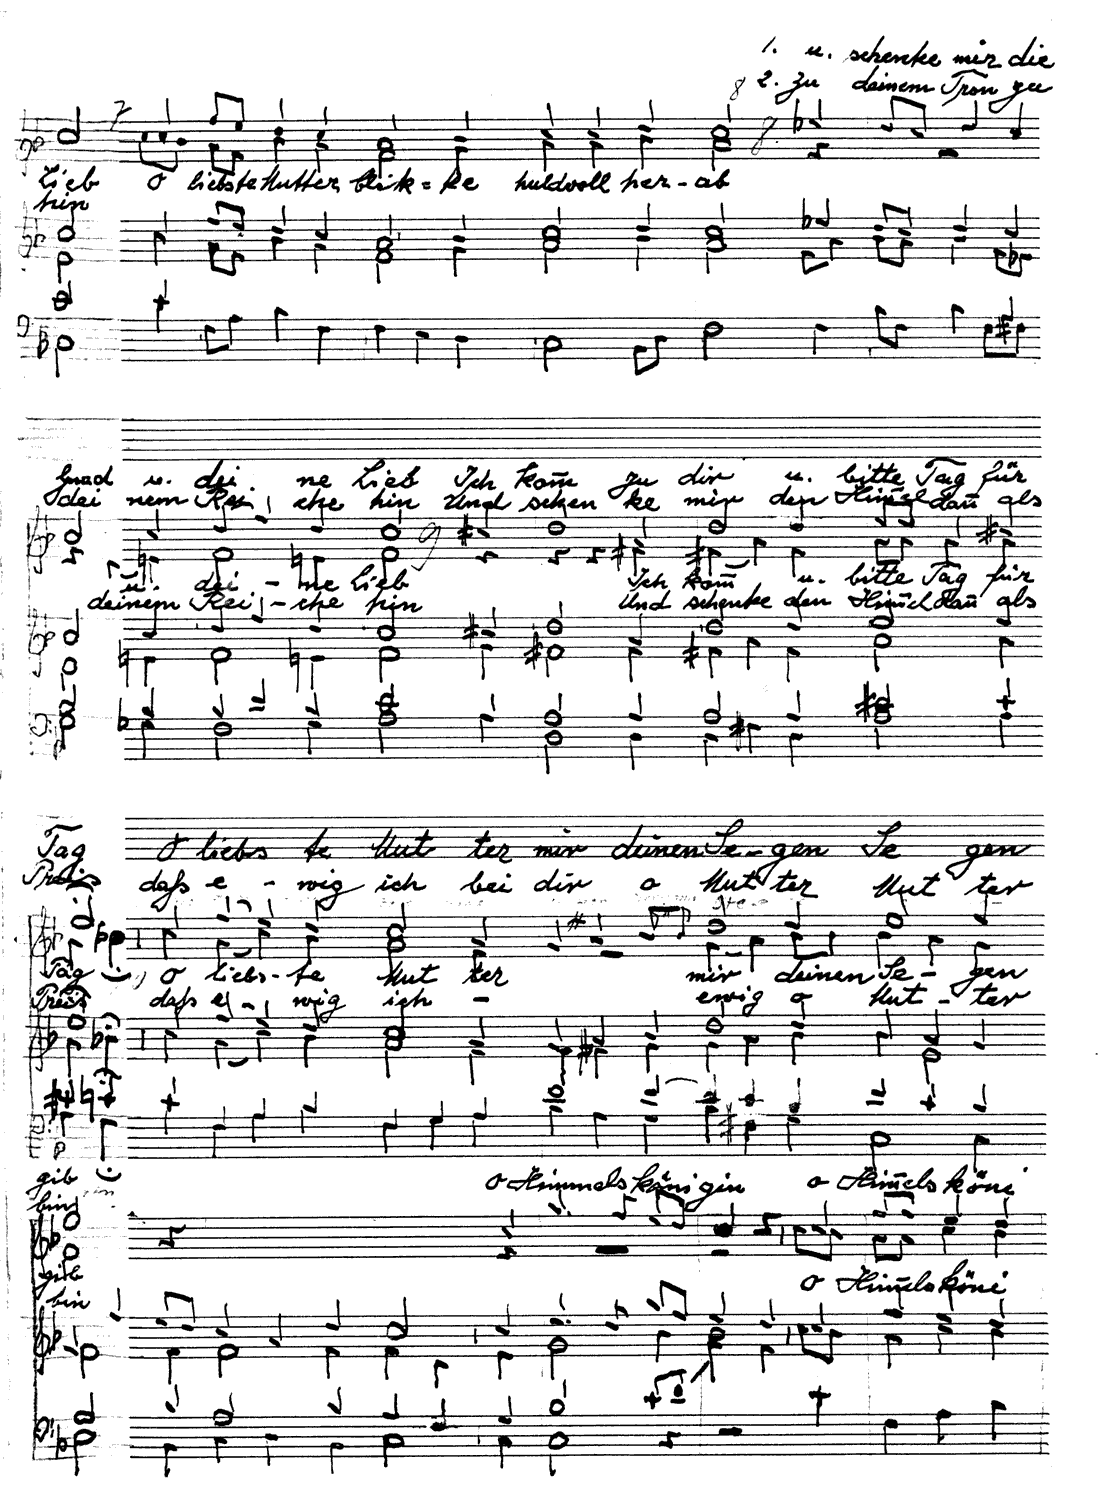 1. u. schenke mir die
2. zu deinem Tron zu
7
8
8
Lieb O liebste Mutter blik = ke huldvoll her - ab
hin
Gnad u. dei ne Lieb Ich kom̄ zu dir u. bitte Tag für
dei nem Rei che hin Und schen ke mir den Him̄el dan̄ als
9
u. dei - ne Lieb Ich kom̄ u. bitte Tag für
deinem Rei - che hin Und schenke den Him̄el dan̄ als
Tag O liebs te Mut ter mir deinen Se - gen Se gen
Preis daß e - wig ich bei dir o Mut ter Mut ter
Tag , O liebs - te Mut ter mir deinen Se - gen
Preis daß e - wig ich - ewig o Mut - ter
gib o Himmelskönigin o Him̄elsköni
bin
gib o Him̄elsköni
bin